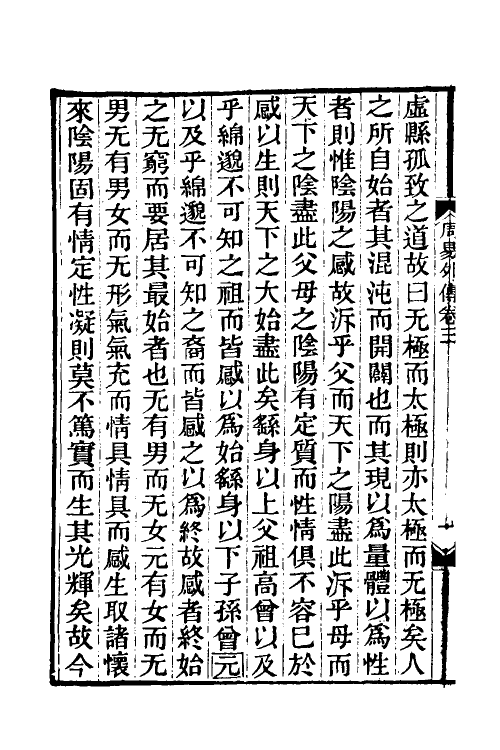 虛縣孤致之道故曰无極而太極則亦太極而无極矣人
之所自始者其混沌而開闢也而其現以爲量體以爲性
者則惟陰陽之感故泝乎父而天下之陽盡此泝乎母而
天下之陰盡此父母之陰陽有定質而性情俱不容已於
感以生則天下之大始盡此矣繇身以上父祖高曾以及
乎綿邈不可知之祖而皆感以爲始繇身以下子孫曾元
以及乎綿邈不可知之裔而皆感之以爲終故感者終始
之无窮而要居其最始者也无有男而无女无有女而无
男无有男女而无形氣氣充而情具情具而感生取諸懷
來陰陽固有情定性凝則莫不篤實而生其光輝矣故今
周易外傳卷三